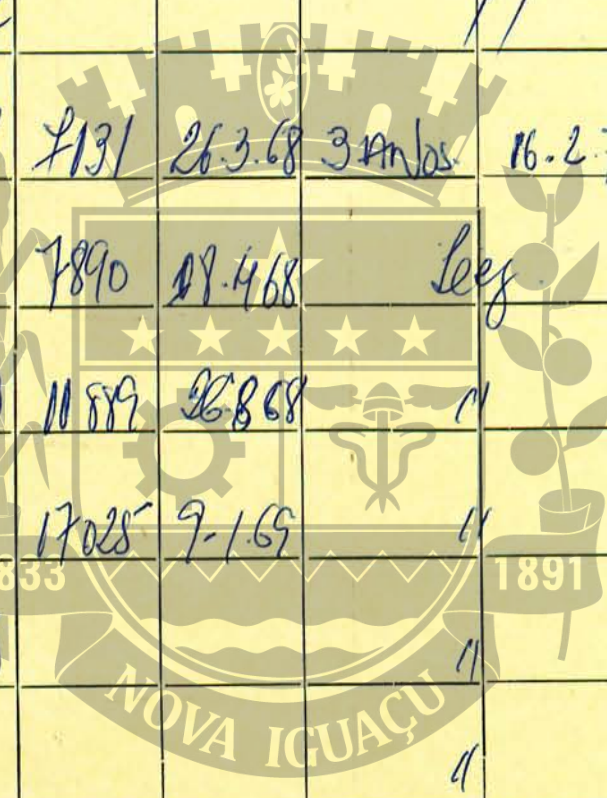 "
7131 26.3.68 3 Anos 16.2
7890 18.4.68
11889 26.8.68 "
17025 9-1.69 "
"
"
1833 1891
NOVA IGUAÇU